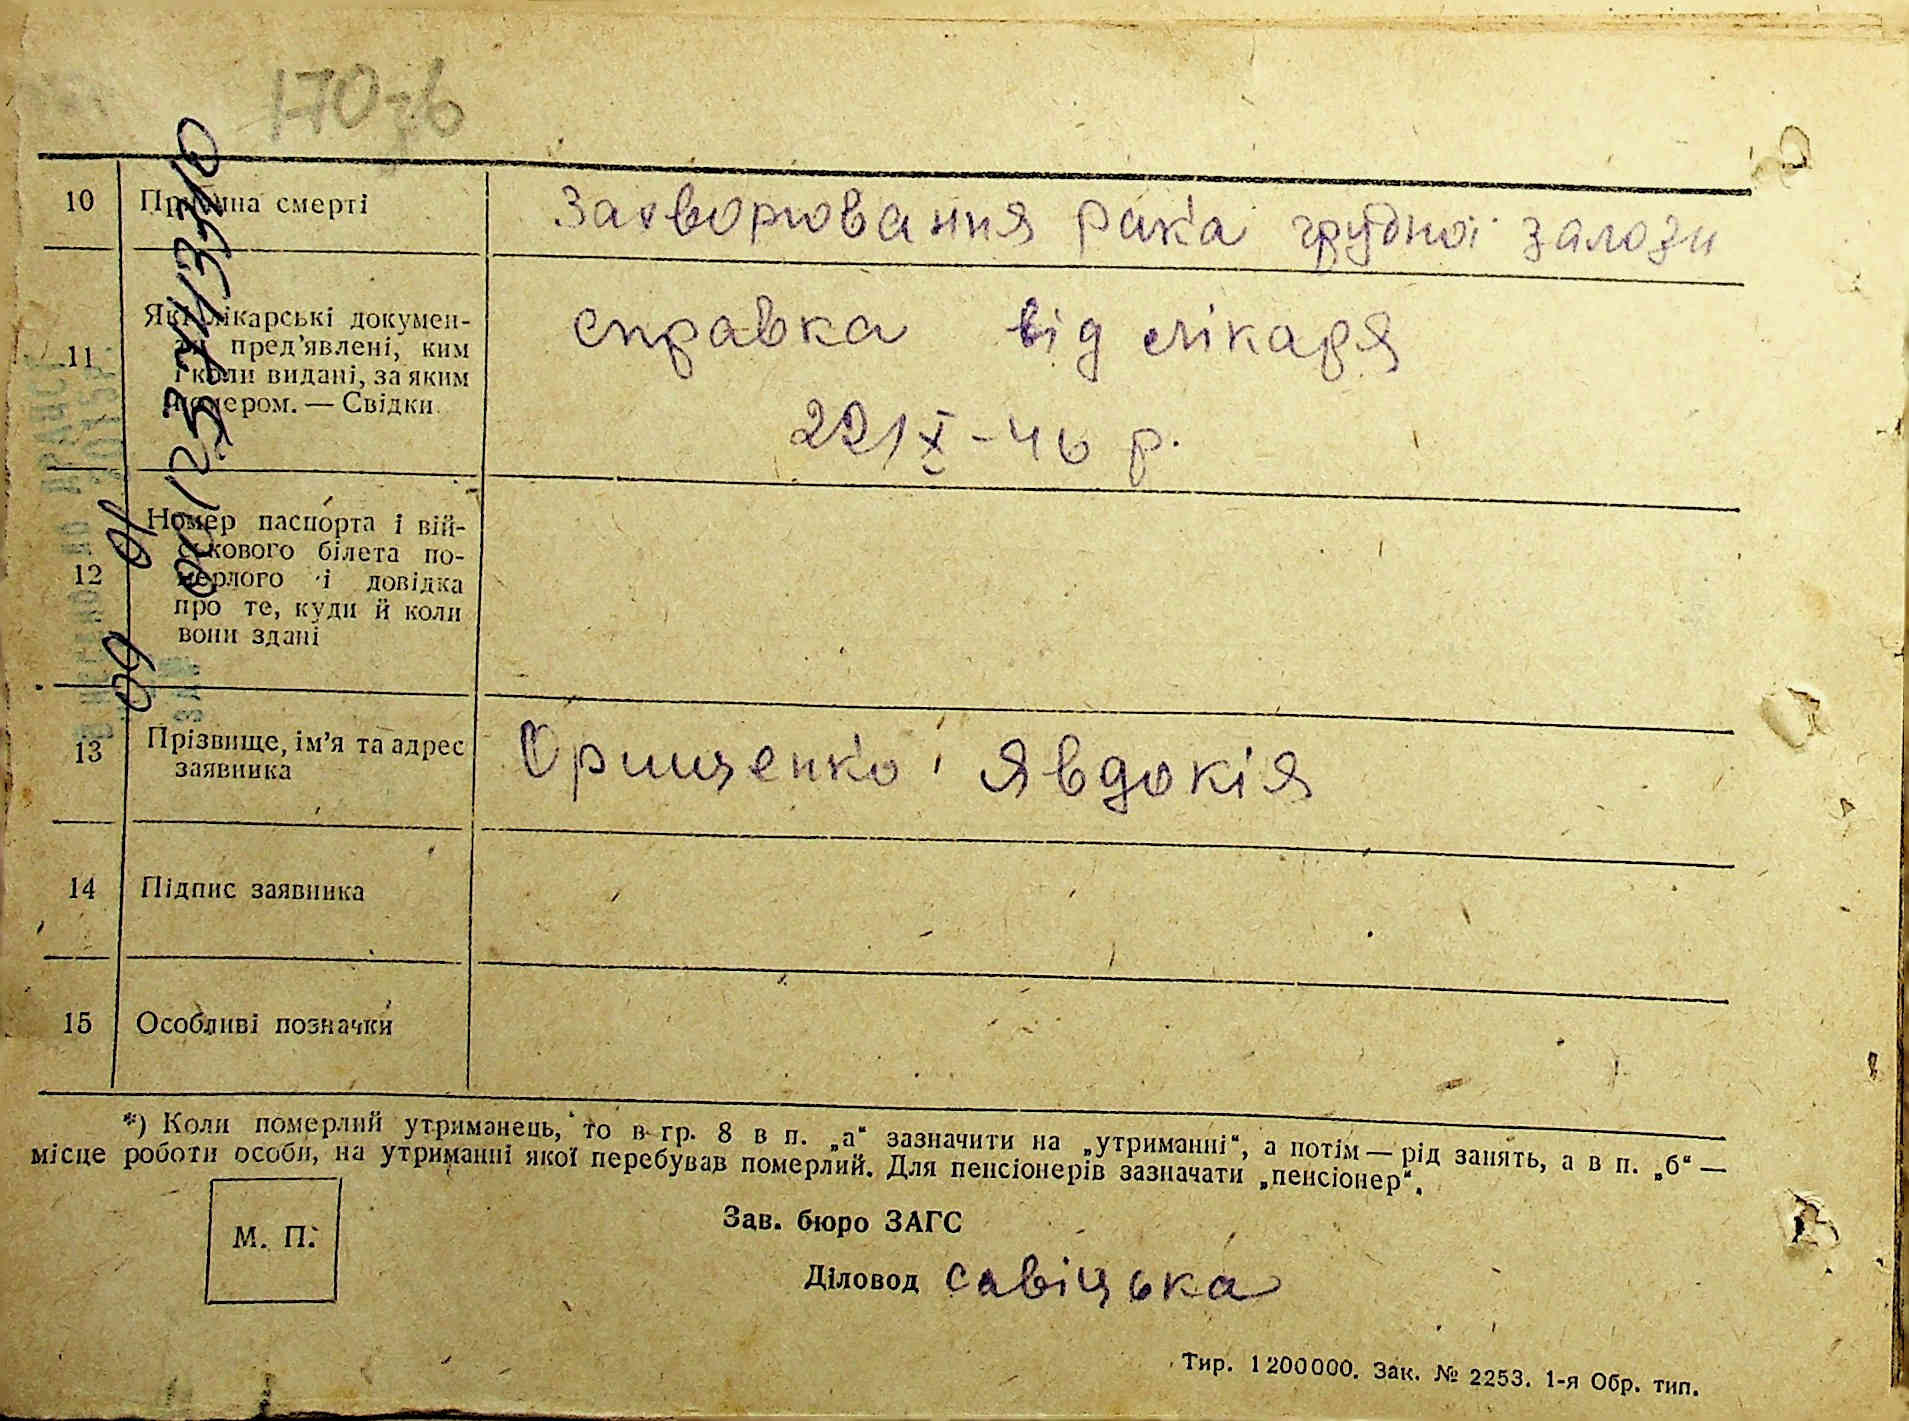 170-зв
10 Причина смерті Захворювання рака грудної залози
11 Які лікарські докумен-
ти пред'явлені, ким
і коли видані, за яким
номером. — Свідки
справка від лікаря
22/X-46 р.
12 Номер паспорта і вій-
ськового білета по-
мерлого і довідка
про те, куди й коли
вони здані
13 Прізвище, ім'я та адрес
заявника
Орищенко Явдокія
14 Підпис заявника
15 Особливі позначки
*) Коли померлий утриманець, то в гр. 8 в п. „а“ зазначити на „утриманні“, а потім — рід занять, а в п. „б“ —
місце роботи особи, на утриманні якої перебував померлий. Для пенсіонерів зазначати „пенсіонер“.
М. П.
Зав. бюро ЗАГС
Діловод савіцька
Тир. 1200000. Зак. № 2253. 1-я Обр. тип.